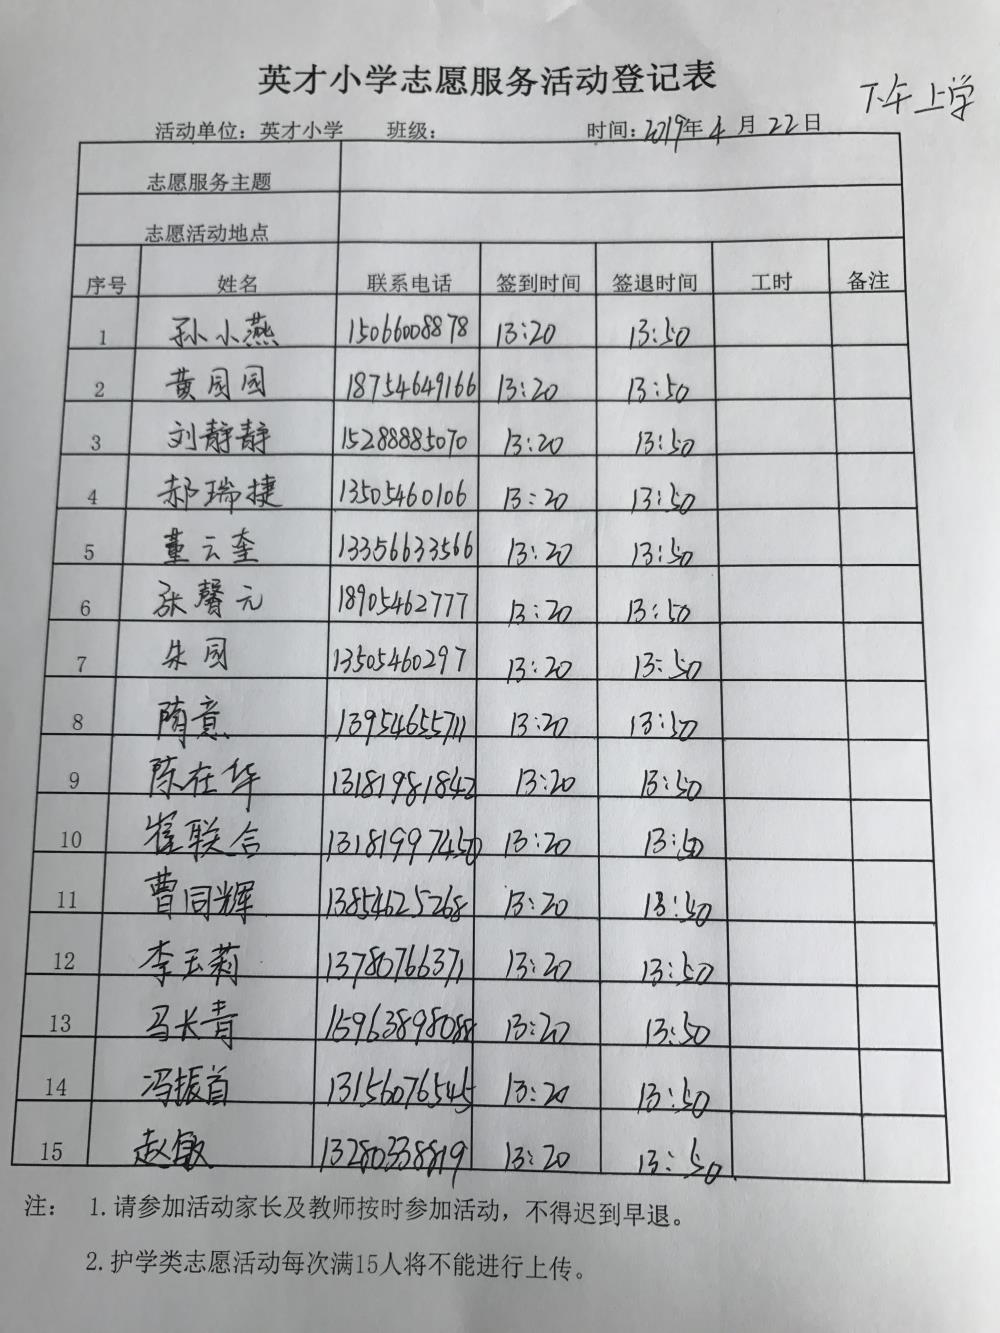 英才小学志愿服务活动登记表
下午上学
活动单位：英才小学 班级： 时间：2019年4月22日
志愿服务主题
志愿活动地点
序号 姓名 联系电话 签到时间 签退时间 工时 备注
1 孙小燕 15066008878 13:20 13:50
2 黄园园 18754649166 13:20 13:50
3 刘静静 15288885070 13:20 13:50
4 郝瑞捷 13505460106 13:20 13:50
5 董云奎 13356633566 13:20 13:50
6 张馨元 18905462777 13:20 13:50
7 朱园 13505460297 13:20 13:50
8 隋意 13954655711 13:20 13:50
9 陈在华 13181981842 13:20 13:50
10 崔联合 13181997450 13:20 13:50
11 曹同辉 13854625268 13:20 13:50
12 李玉莉 13780766371 13:20 13:50
13 马长青 15963898088 13:20 13:50
14 冯振首 13156076545 13:20 13:50
15 赵敏 13280338819 13:20 13:50
注： 1.请参加活动家长及教师按时参加活动，不得迟到早退。
2.护学类志愿活动每次满15人将不能进行上传。